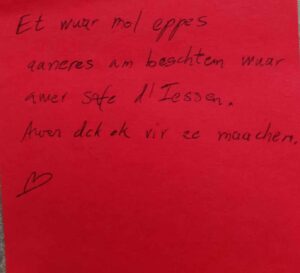 Et waar mol eppes
aaneres am beschtem waar
awer safe d'Iessen.
Awer dck ok vir ze maachen.